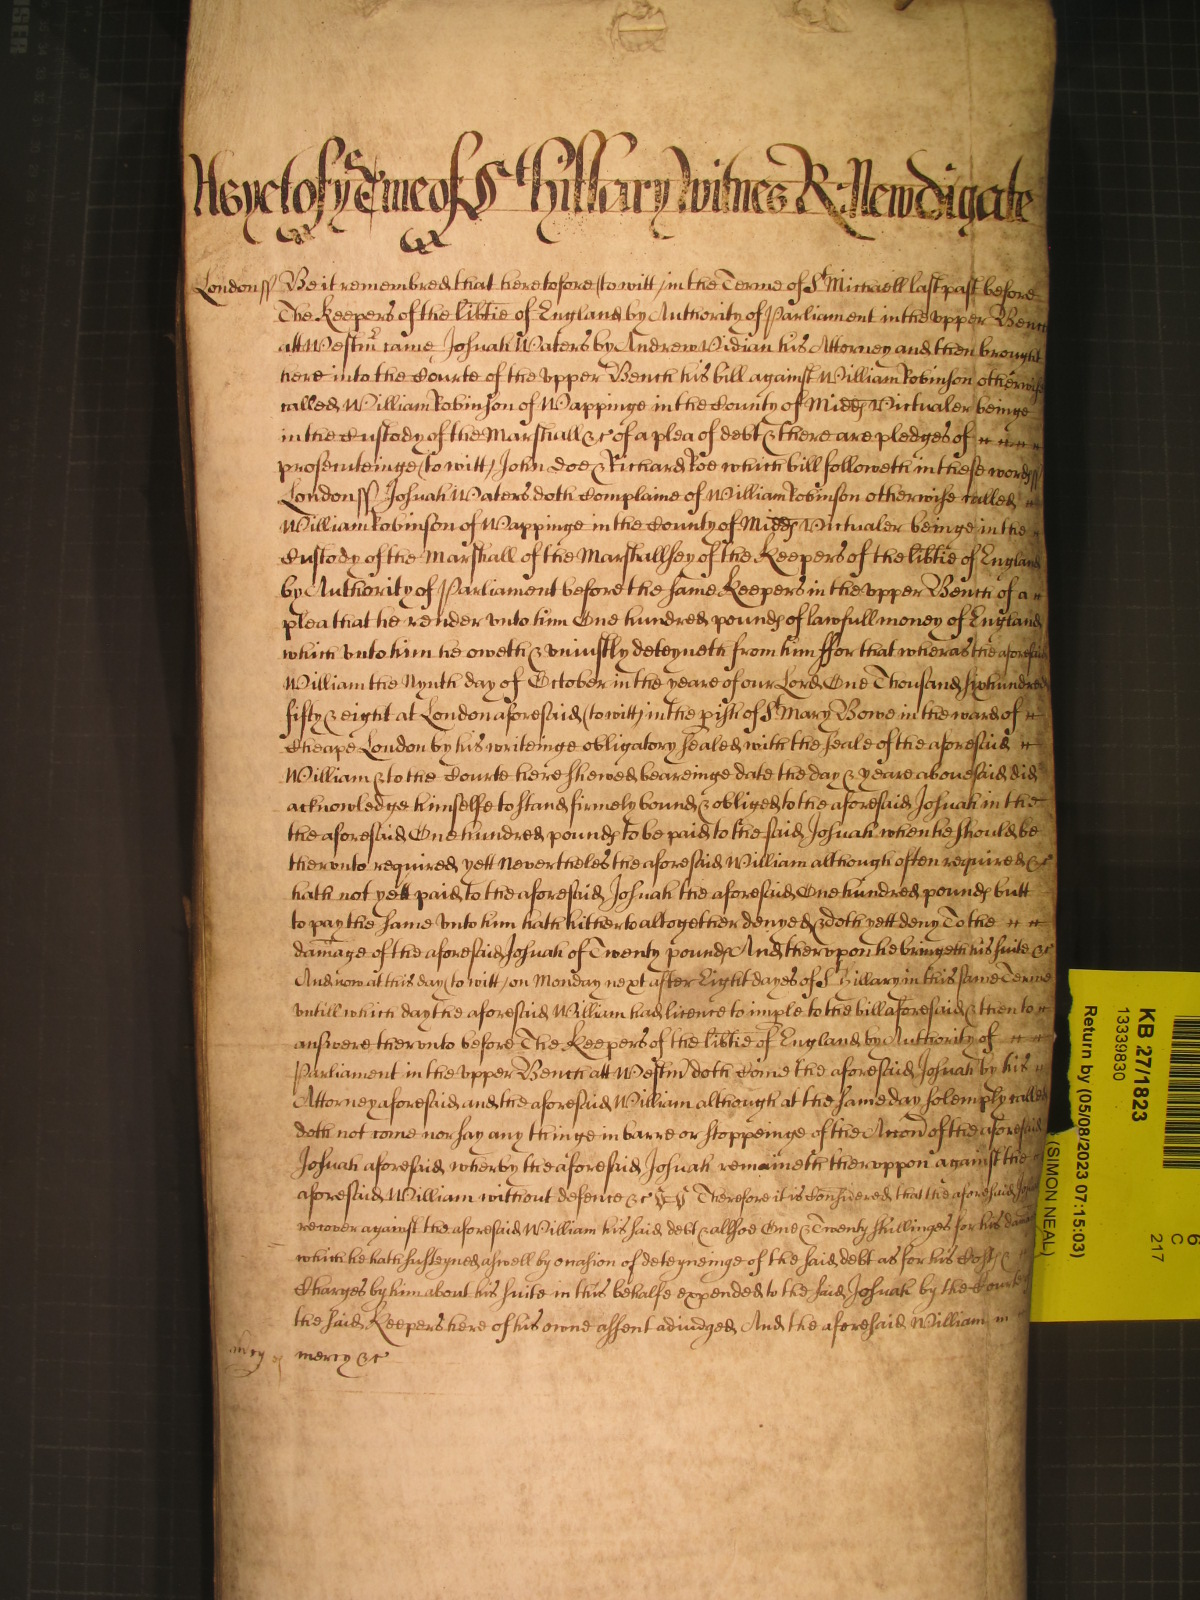 As yet of ye Terme of St Hillary Witnes R: Newdigate
London ss Be it remembred that heretofore (to witt) in the Terme of St Michaell last past before
The Keepers of the libtie of England by Authority of Parliament in the vpper Bench
att Westmr came Joshuah Waters by Andrew Vidian his Attorney and then brought
here into the Courte of the vpper Bench his bill against William Robinson otherwise
called William Robinson of Wappinge in the County of Midds Victualer beinge
in the Custody of the Marshall &c of a plea of debt & there are pledges of
prosecuteinge (to witt) John Doe & Richard Roe which bill followeth in these words ss
London ss Joshuah Waters doth Complaine of William Robinson otherwise called
William Robinson of Wappinge in the County of Midds Victualer beinge in the
Custody of the Marshall of the Marshallsey of the Keepers of the libtie of England
by Authority of Parliament before the same Keepers in the vpper Bench of a
plea that he render vnto him One hundred pounds of lawfull money of England
which vnto him he oweth & vniustly deteyneth from him ffor that wheras the aforesaid
William the Nynth day of October in the yeare of our Lord One Thousand sixhundred
fifty & eight at London aforesaid (to witt) in the pish of St Mary Bowe in the ward of
Cheape London by his writeinge obligatory sealed with the seale of the aforesaid
William & to the Courte here shewed beareinge date the day & yeare abouesaid did
acknowledge himselfe to stand firmely bound & obliged to the aforesaid Joshuah in the
the aforesaid One hundred pounds to be paid to the said Joshuah when he should be
thervnto required yett Neverthelesse the aforesaid William although often required &c
hath not yett paid to the aforesaid Joshuah the aforesaid One hundred pounds butt
to pay the same vnto him hath hitherto altogether denyed & doth yett deny To the
damage of the aforesaid Joshuah of Twenty pounds And thervpon he bringeth his suite &c
And now at this day (to witt) on Monday next after Eight dayes of St Hillary in this same Terme
vntill which day the aforesaid William had licence to imple to the bill aforesaid & then to
answere thervnto before The Keepers of the libtie of England by Authority of
Parliament in the vpper Bench att Westmr doth Come the aforesaid Joshuah by his
Attorney aforesaid and the aforesaid William although at the same day solemply called
doth not come nor say any thinge in barre or stoppeinge of the Accon of the aforesaid
Joshuah aforesaid wherby the aforesaid Joshuah remaineth thervppon against the
aforesaid William without defence &c Therefore it is Considered that the aforesaid Joshuah
recover against the aforesaid William his said debt & allsoe One & Twenty shillinges for his
which he hath susteyned aswell by occasion of deteyneinge of the said debt as for his Costs &
Charges by him about his suite in this behalfe expended to the said Joshuah by the Courte of
the said Keepers here of his owne assent adiudged And the aforesaid William in
mercy &c
mcy
KB 27/1823
13339830
Return by (05/08/2023 07:15:03)
(SIMON NEAL)
6
C
217